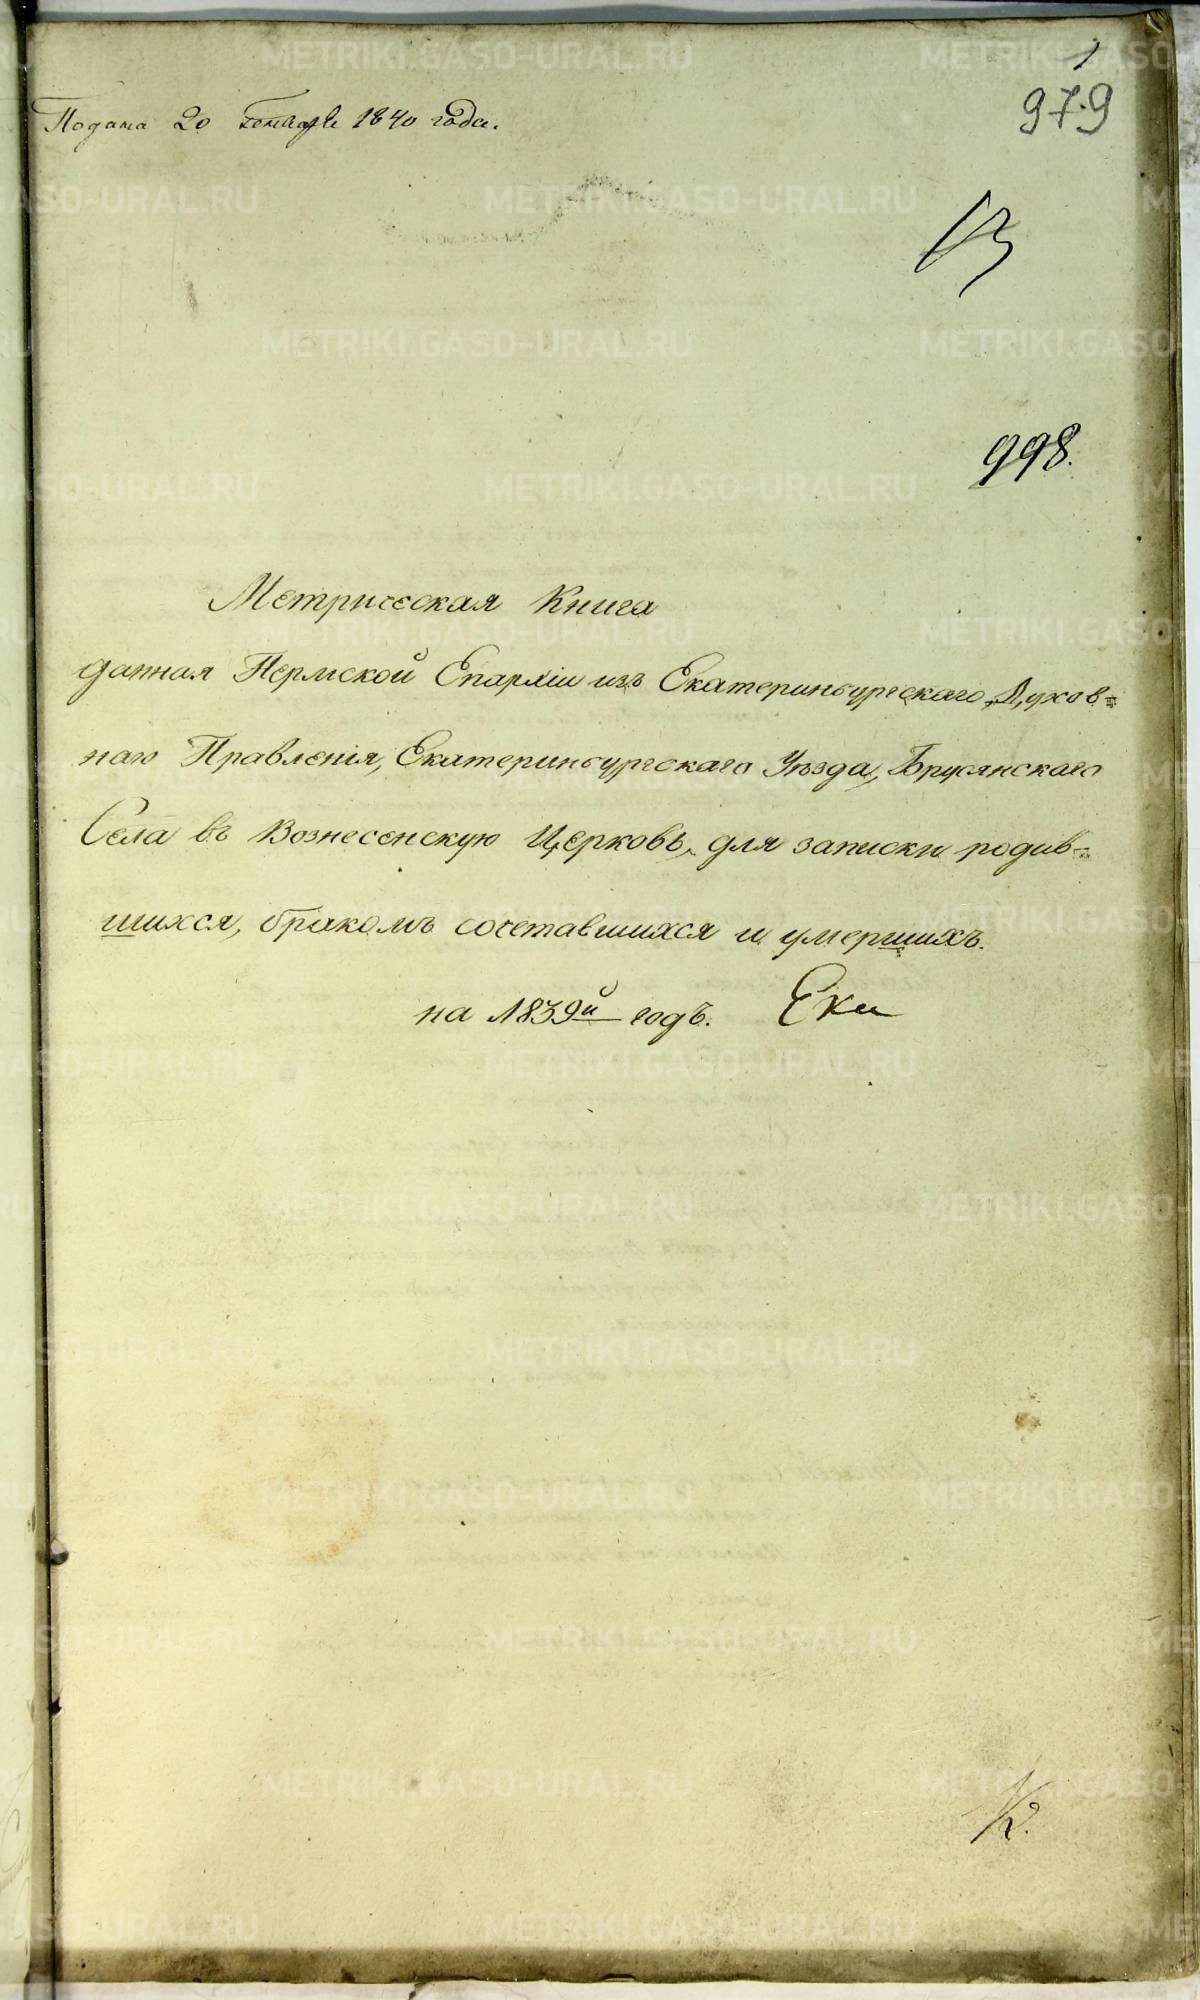 1
979
Подана 20 генваря 1840 года.
13
998.
Метрическая Книга
данная Пермской Епархіи изъ Екатеринбургскаго Духов=
наго Правленія, Екатеринбургскаго Уезда, Брусянскаго
Села въ Вознесенскую Церковь, для записки родив=
шихся, бракомъ сочетавшихся и умершихъ.
на 1839й годъ. Ека
METRIKI.GASO-URAL.RU